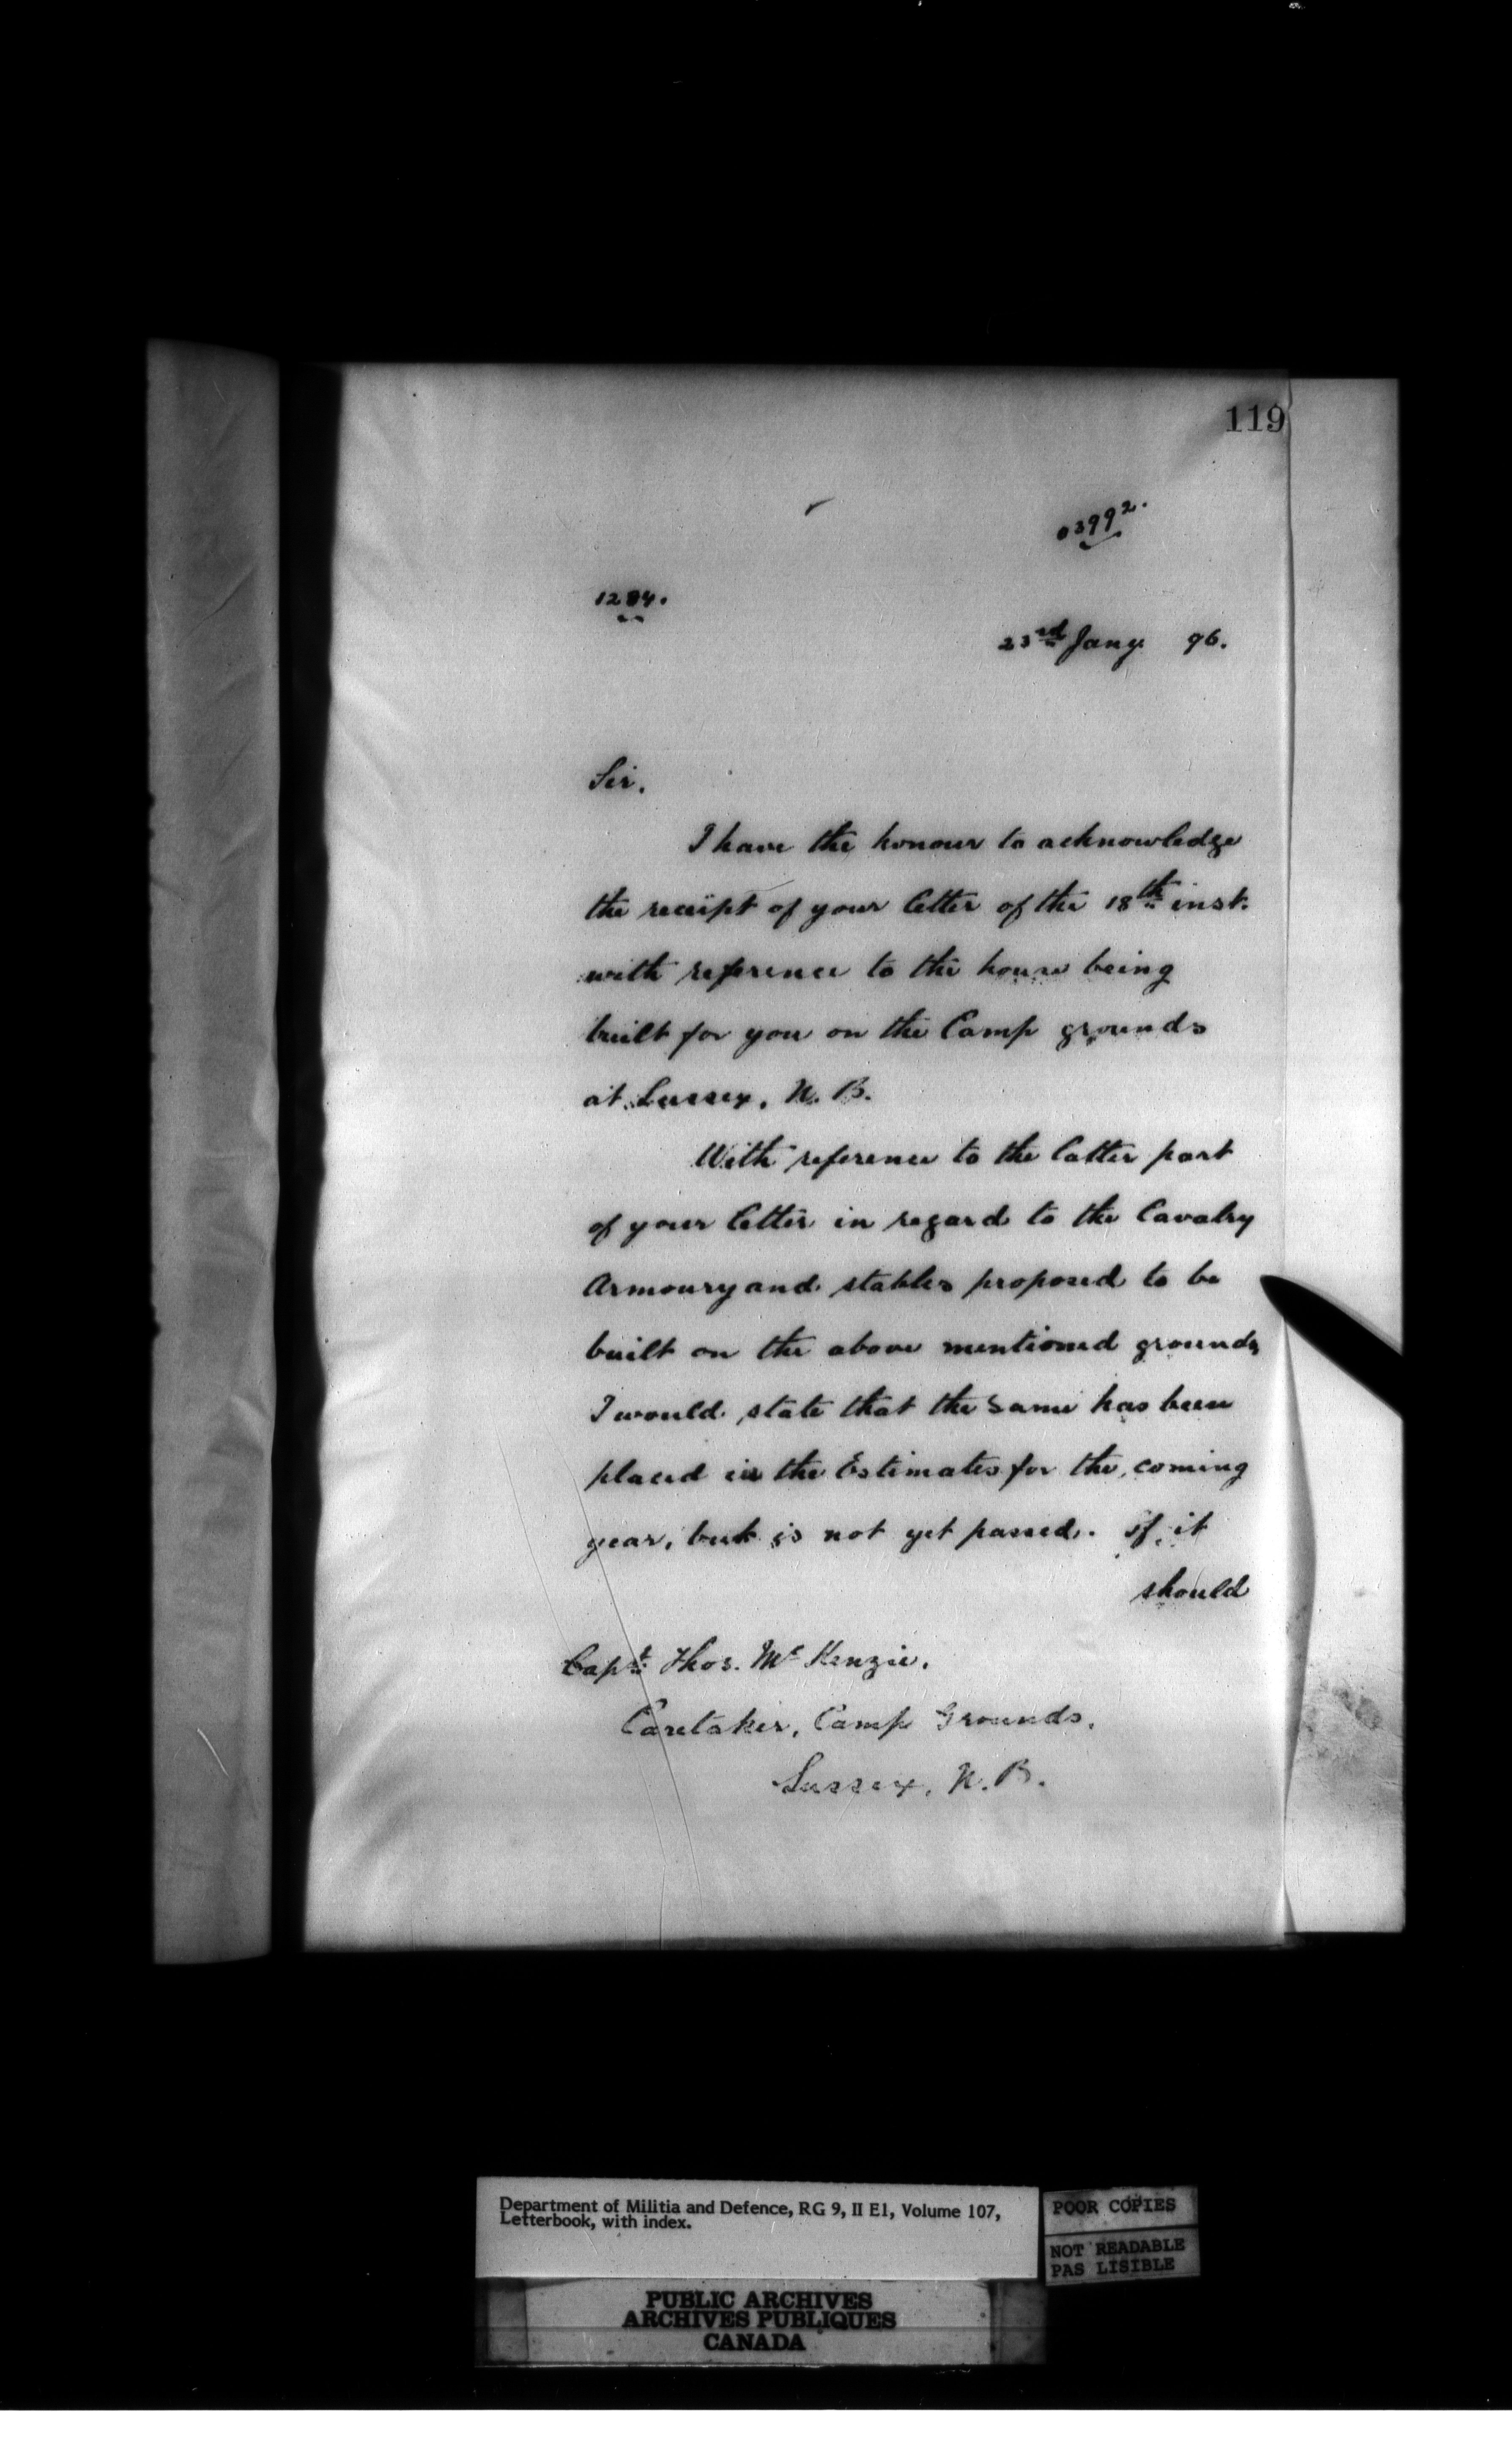 119
03992.
1284.
23rd Jany. 96.
Sir,
I have the honour to acknowledge
the receipt of your letter of the 18th inst.
with reference to the house being
built for you on the Camp grounds
at Sussex, N. B.
With reference to the latter part
of your letter in regard to the Cavalry
Armoury and stables proposed to be
built on the above mentioned grounds,
I would state that the same has been
placed in the Estimates for the coming
year, but is not yet passed. If it
should
Capt. Thos. McKenzie,
Caretaker, Camp Grounds,
Sussex, N. B.
Department of Militia and Defence, RG 9, II E1, Volume 107,
Letterbook, with index.
POOR COPIES
NOT READABLE
PAS LISIBLE
PUBLIC ARCHIVES
ARCHIVES PUBLIQUES
CANADA